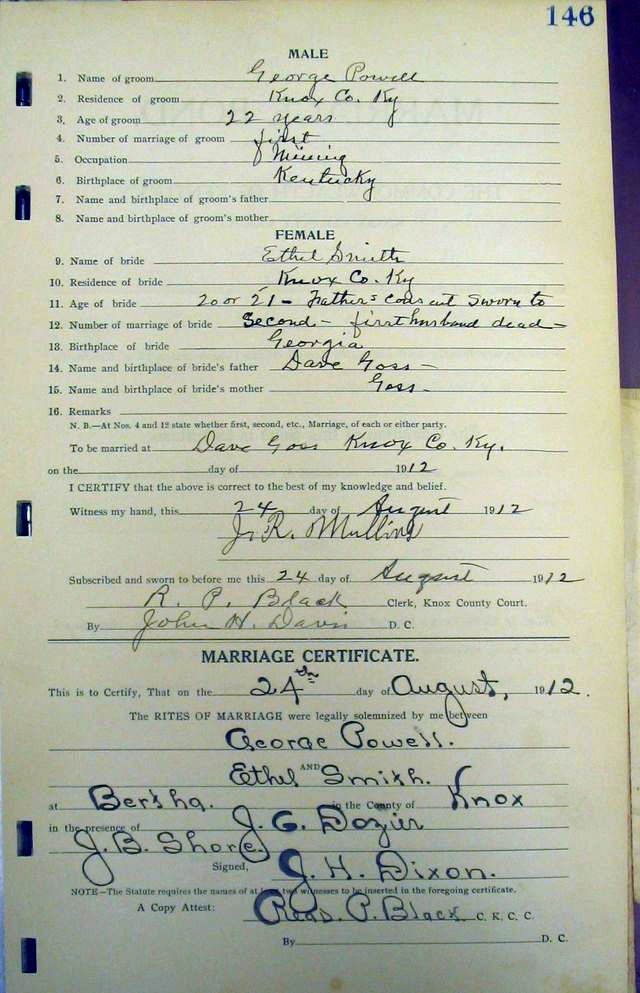 146
MALE
1. Name of groom George Powell
2. Residence of groom Knox Co. Ky
3. Age of groom 22 years
4. Number of marriage of groom first
5. Occupation Mining
6. Birthplace of groom Kentucky
7. Name and birthplace of groom's father
8. Name and birthplace of groom's mother
FEMALE
9. Name of bride Ethel Smith
10. Residence of bride Knox Co. Ky
11. Age of bride 20 or 21 - Father's consent sworn to
12. Number of marriage of bride Second - first husband dead -
13. Birthplace of bride Georgia
14. Name and birthplace of bride's father Dave Goss -
15. Name and birthplace of bride's mother Goss -
16. Remarks
N. B.—At Nos. 4 and 12 state whether first, second, etc., Marriage, of each or either party.
To be married at Dave Goss Knox Co. Ky.
on the day of 1912
I CERTIFY that the above is correct to the best of my knowledge and belief.
Witness my hand, this 24 day of August 1912
J. R. Mullins
Subscribed and sworn to before me this 24 day of August 1912
R. P. Black Clerk, Knox County Court.
By John H. Davis D. C.
MARRIAGE CERTIFICATE.
This is to Certify, That on the 24th day of August, 1912.
The RITES OF MARRIAGE were legally solemnized by me between
George Powell.
AND
Ethel Smith.
at Bertha. in the County of Knox
in the presence of J. C. Dozier
J. B. Shore.
Signed, J. H. Dixon.
NOTE—The Statute requires the names of at least two witnesses to be inserted in the foregoing certificate.
A Copy Attest: P. Black C. K. C. C.
By D. C.